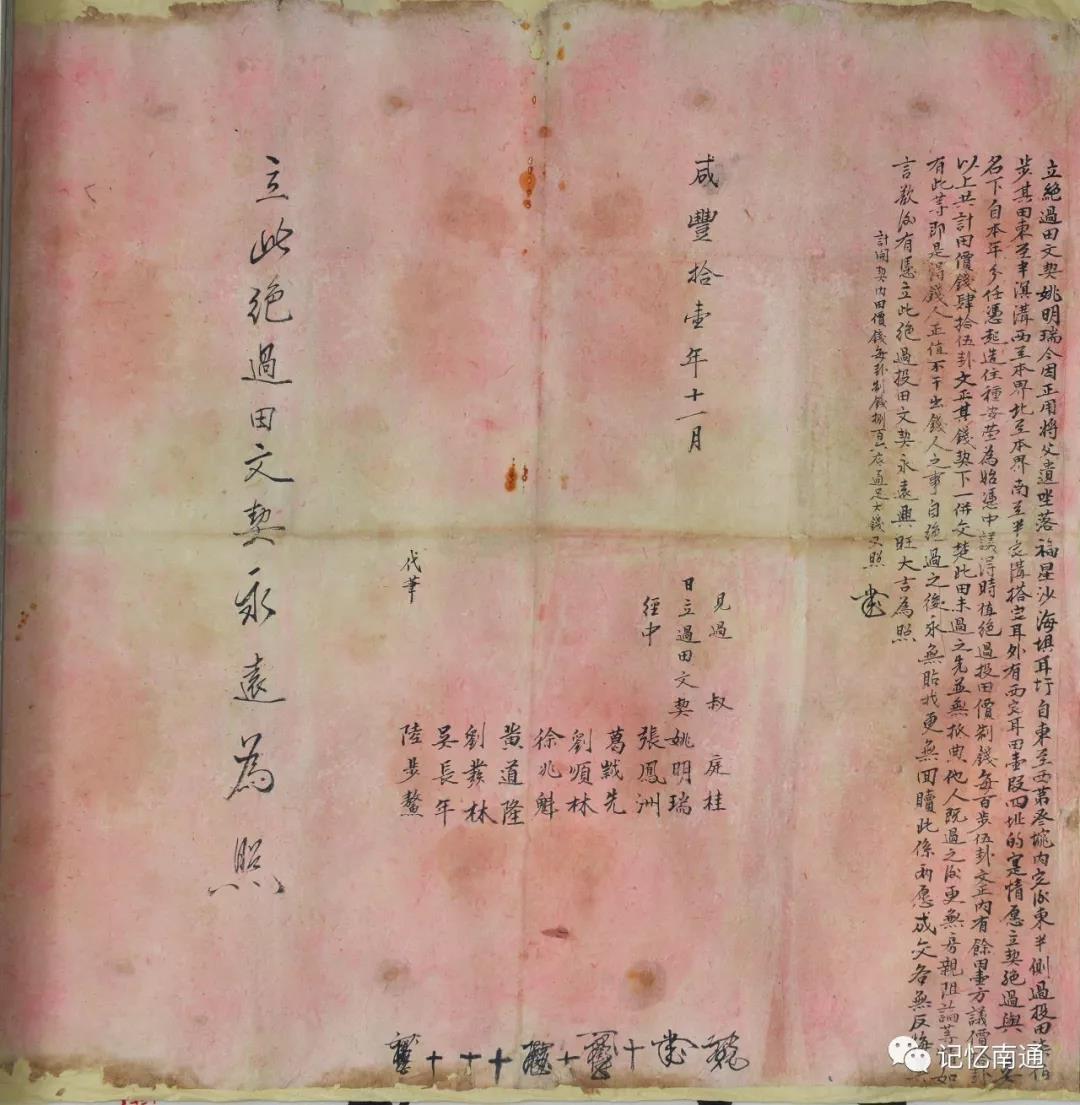 立絶過田文契姚明瑞今因正用將父遺坐落福星沙海埧耳圩自東至西第叁埦内宅後東半側過投田
步其田東至半溟溝西至本界北至本界南至半宅溝搭宅耳外有西宅耳田壹段四址的寔情愿立契絶過與
名下自本年夕任憑起造住種安茔為始憑中議得時值絶過投田價制錢每百步伍卦文正内有餘田壹方議價
以上共計田價錢肆拾伍卦文正其錢契下一併交楚此田未過之先並無抵典他人既過之後更無房親阻論等如
有此等即是得錢人正值不干出錢人之事自絶過之後永無貼找更無回贖此係兩愿成交各無反悔
言欲後有憑立此絶過投田文契永遠興旺大吉為照
計開契内田價錢每卦制錢捌百六底通足大錢又照
咸豐拾壹年十一月
見過 叔 庭桂
日立過田文契 姚明瑞
經中 張鳳洲
葛戥先
劉順林
徐兆魁
黄道隆
劉發林
吴長年
代筆 陸步鰲
立此絶過田文契永遠為照
记忆南通